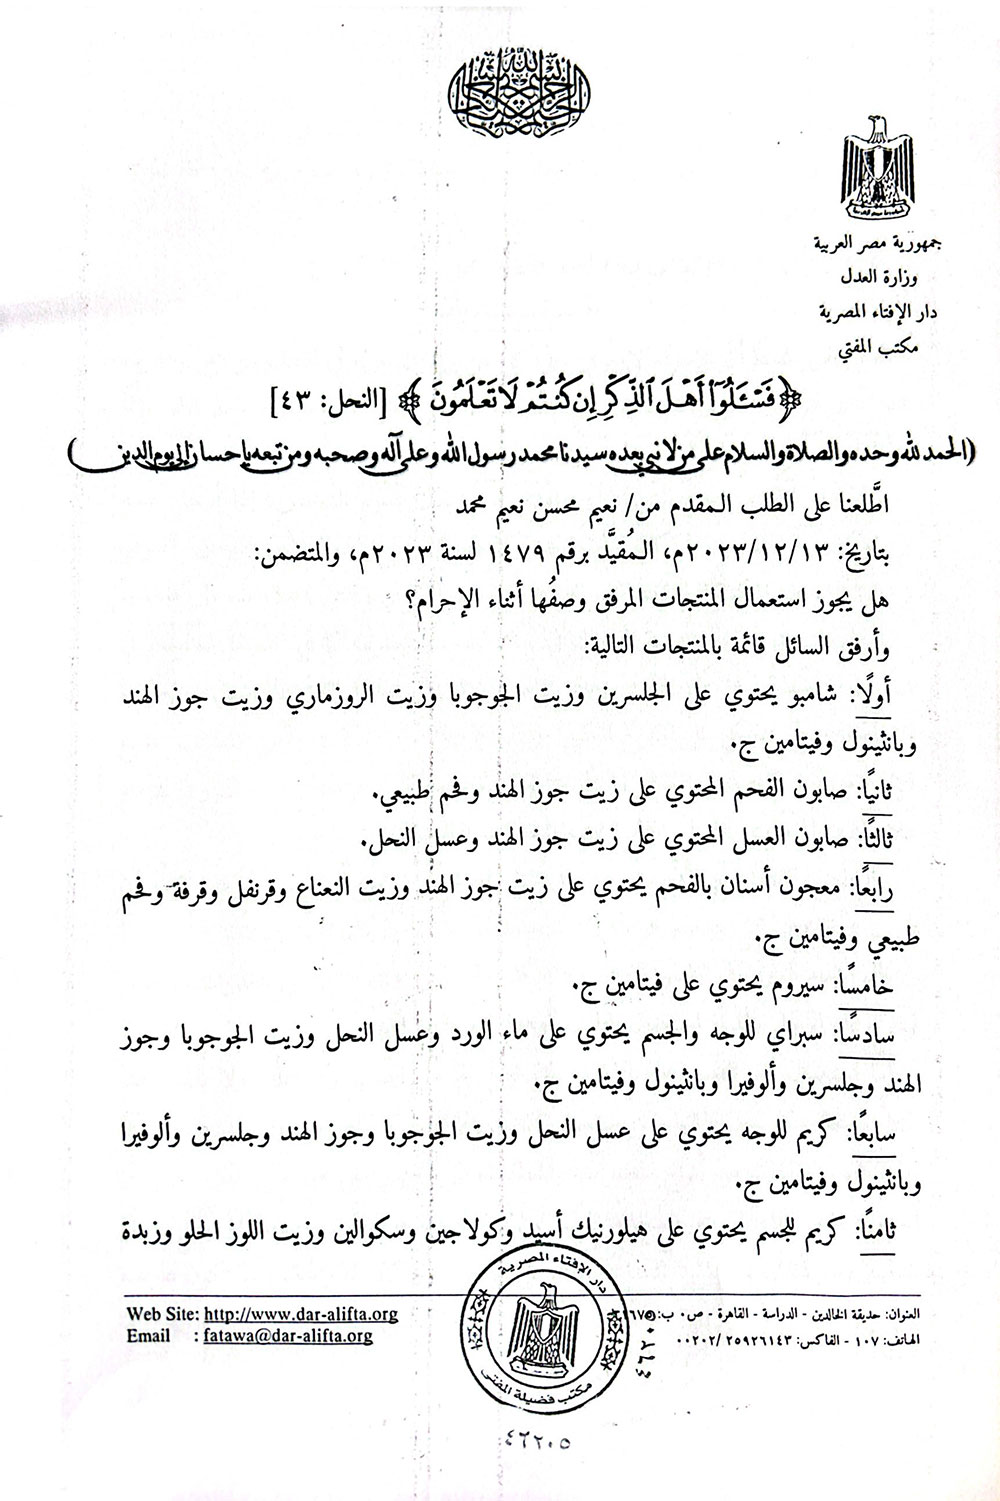 بسم الله الرحمن الرحيم
جمهورية مصر العربية
وزارة العدل
دار الإفتاء المصرية
مكتب المفتي
﴿فَسْـَٔلُوٓا۟ أَهْلَ ٱلذِّكْرِ إِن كُنتُمْ لَا تَعْلَمُونَ﴾ [النحل: ٤٣]
(الحمد لله وحده والصلاة والسلام على من لا نبي بعده سيدنا محمد رسول الله وعلى آله وصحبه ومن تبعه بإحسان إلى يوم الدين)
اطَّلعنا على الطلب المقدم من/ نعيم محسن نعيم محمد
بتاريخ: ٢٠٢٣/١٢/١٣م، المُقيَّد برقم ١٤٧٩ لسنة ٢٠٢٣م، والمتضمن:
هل يجوز استعمال المنتجات المرفق وصفُها أثناء الإحرام؟
وأرفق السائل قائمة بالمنتجات التالية:
أولًا: شامبو يحتوي على الجلسرين وزيت الجوجوبا وزيت الروزماري وزيت جوز الهند
وبانثينول وفيتامين ج.
ثانيًا: صابون الفحم المحتوي على زيت جوز الهند وفحم طبيعي.
ثالثًا: صابون العسل المحتوي على زيت جوز الهند وعسل النحل.
رابعًا: معجون أسنان بالفحم يحتوي على زيت جوز الهند وزيت النعناع وقرنفل وقرفة وفحم
طبيعي وفيتامين ج.
خامسًا: سيروم يحتوي على فيتامين ج.
سادسًا: سبراي للوجه والجسم يحتوي على ماء الورد وعسل النحل وزيت الجوجوبا وجوز
الهند وجلسرين وألوفيرا وبانثينول وفيتامين ج.
سابعًا: كريم للوجه يحتوي على عسل النحل وزيت الجوجوبا وجوز الهند وجلسرين وألوفيرا
وبانثينول وفيتامين ج.
ثامنًا: كريم للجسم يحتوي على هيلورنيك أسيد وكولاجين وسكوالين وزيت اللوز الحلو وزبدة
العنوان: حديقة الخالدين - الدراسة - القاهرة - ص٠ ب: ١١٦٧٥
الهاتف: ١٠٧ - الفاكس: ٢٥٩٢٦١٤٣ /٠٠٢٠٢
Web Site: http://www.dar-alifta.org
Email : fatawa@dar-alifta.org
دار الإفتاء المصرية
مكتب فضيلة المفتي
٤٦٢٠٥
٤٦٢٠٥